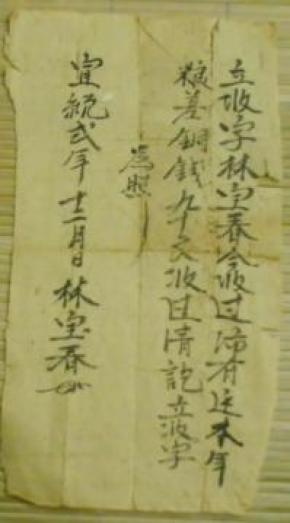 立收字林宝春今收过沛有送本年
粮差铜钱九十文收过清讫立收字
为照
宣統弍年十二月日林宝春